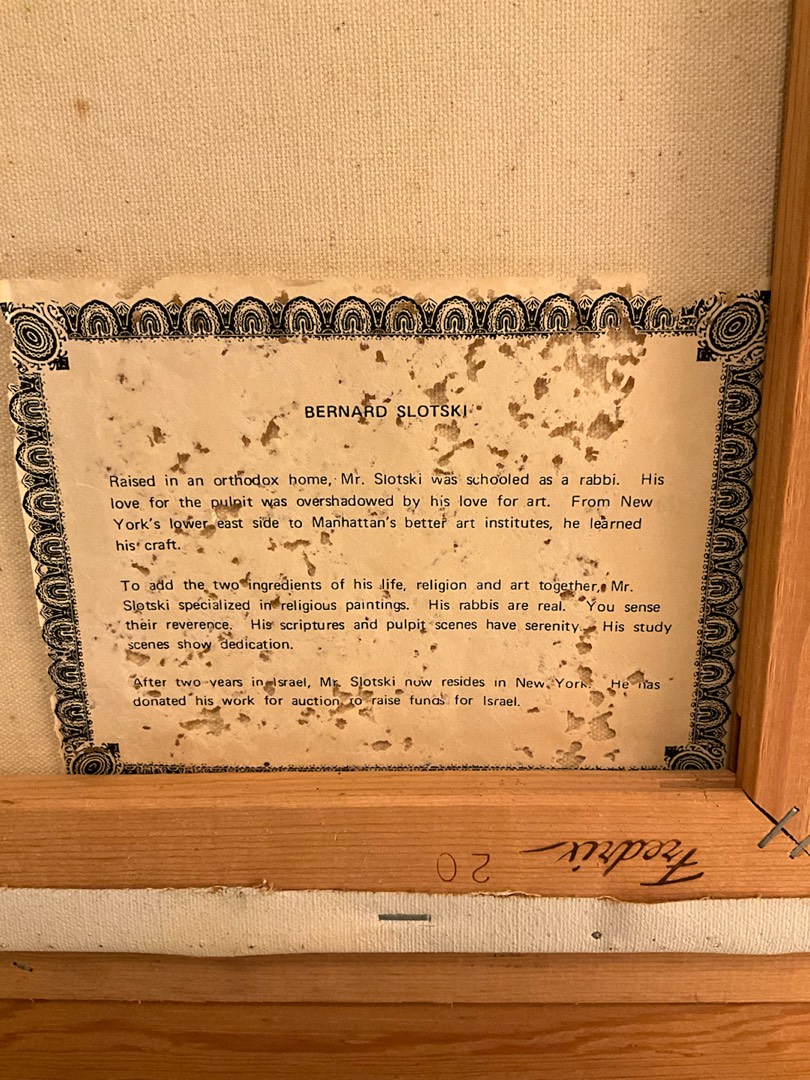 BERNARD SLOTSKI
Raised in an orthodox home, Mr. Slotski was schooled as a rabbi. His
love for the pulpit was overshadowed by his love for art. From New
York's lower east side to Manhattan's better art institutes, he learned
his craft.
To add the two ingredients of his life, religion and art together, Mr.
Slotski specialized in religious paintings. His rabbis are real. You sense
their reverence. His scriptures and pulpit scenes have serenity. His study
scenes show dedication.
After two years in Israel, Mr. Slotski now resides in New York. He has
donated his work for auction to raise funds for Israel.
Fredrix 20